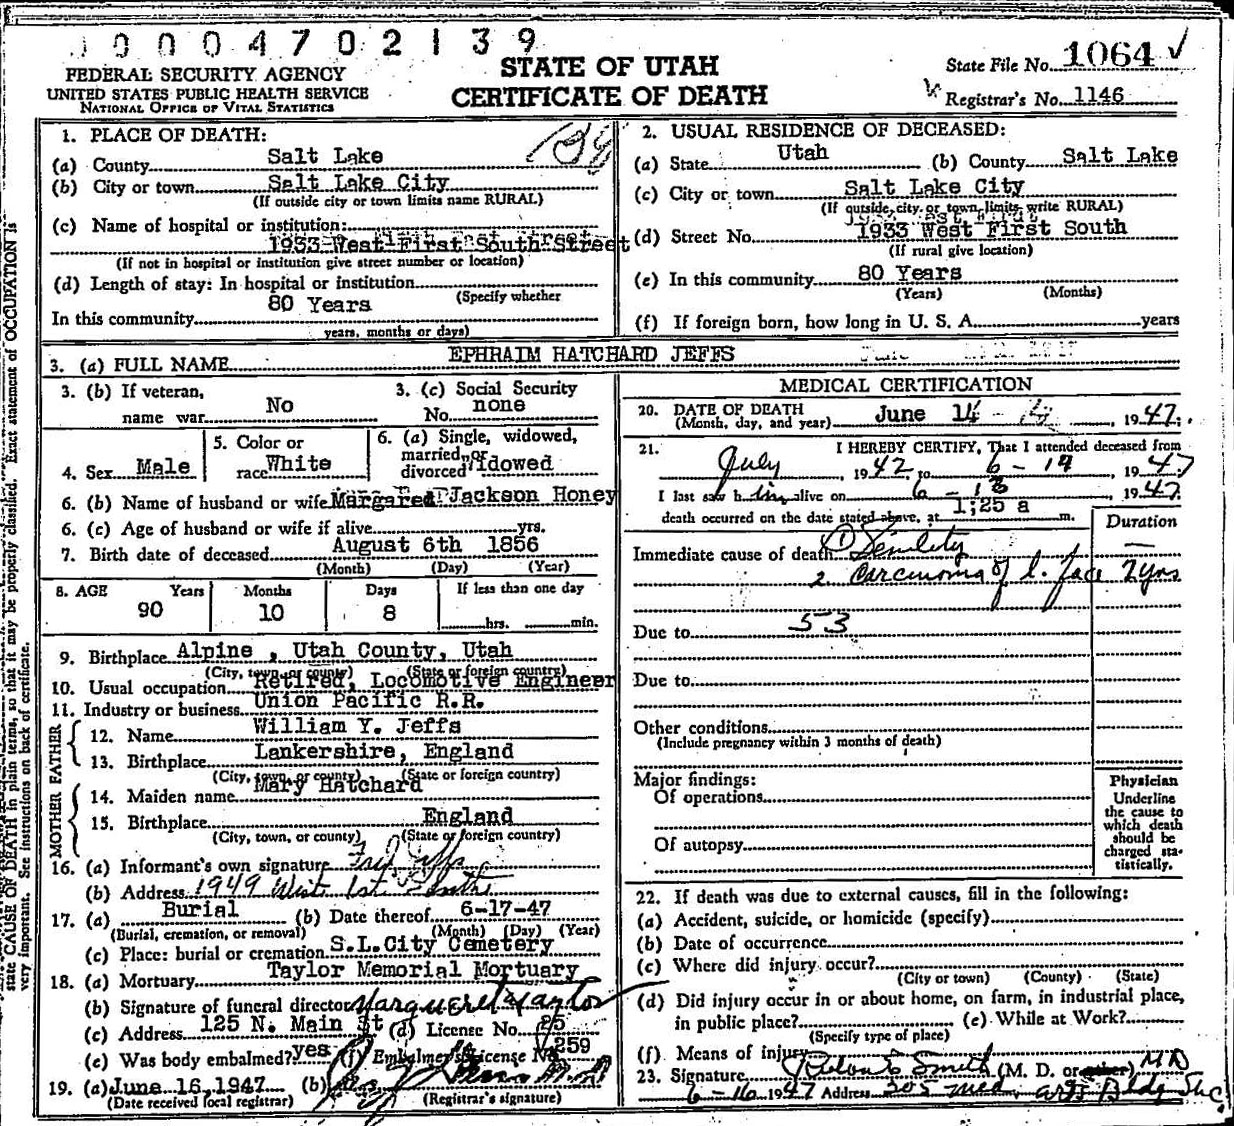 0004702139
FEDERAL SECURITY AGENCY
UNITED STATES PUBLIC HEALTH SERVICE
NATIONAL OFFICE OF VITAL STATISTICS
STATE OF UTAH
CERTIFICATE OF DEATH
State File No. 1064 ✓
Registrar's No. 1146
state CAUSE OF DEATH in plain terms, so that it may be properly classified. Exact statement of OCCUPATION is
very important. See instructions on back of certificate.
1. PLACE OF DEATH:
(a) County Salt Lake
(b) City or town Salt Lake City
(If outside city or town limits name RURAL)
(c) Name of hospital or institution:
1933 West First South Street
(If not in hospital or institution give street number or location)
(d) Length of stay: In hospital or institution
(Specify whether
In this community 80 Years
years, months or days)
2. USUAL RESIDENCE OF DECEASED:
(a) State Utah (b) County Salt Lake
(c) City or town Salt Lake City
(If outside city or town limits write RURAL)
(d) Street No. 1933 West First South
(If rural give location)
(e) In this community 80 Years
(Years) (Months)
(f) If foreign born, how long in U. S. A. years
3. (a) FULL NAME EPHRAIM HATCHARD JEFFS
3. (b) If veteran,
name war No
3. (c) Social Security
No. none
4. Sex Male
5. Color or
race White
6. (a) Single, widowed,
married, or
divorced Widowed
6. (b) Name of husband or wife Margared Jackson Honey
6. (c) Age of husband or wife if alive yrs.
7. Birth date of deceased August 6th 1856
(Month) (Day) (Year)
8. AGE Years Months Days If less than one day
90 10 8 hrs. min.
9. Birthplace Alpine, Utah County, Utah
(City, town, or county) (State or foreign country)
10. Usual occupation Retired, Locomotive Engineer
11. Industry or business Union Pacific R.R.
FATHER
12. Name William Y. Jeffs
13. Birthplace Lankershire, England
(City, town, or county) (State or foreign country)
MOTHER
14. Maiden name Mary Hatchard
15. Birthplace England
(City, town, or county) (State or foreign country)
16. (a) Informant's own signature Jeffs
(b) Address 1949 West 1st South
17. (a) Burial (b) Date thereof 6-17-47
(Burial, cremation, or removal) (Month) (Day) (Year)
(c) Place: burial or cremation S.L.City Cemetery
18. (a) Mortuary Taylor Memorial Mortuary
(b) Signature of funeral director Margueret Taylor
(c) Address 125 N. Main St (d) License No.
(e) Was body embalmed? yes (f) Embalmer's License No. 259
19. (a) June 16, 1947 (b)
(Date received local registrar) (Registrar's signature)
MEDICAL CERTIFICATION
20. DATE OF DEATH
(Month, day, and year) June 14, 1947.
21. I HEREBY CERTIFY, That I attended deceased from
July 1942 to 6-14 1947
I last saw him alive on 6-13 1947
death occurred on the date stated above, at 1;25 a m.
Duration
Immediate cause of death (1) Senility —
2 Carcinoma of l. face 2 yrs
Due to 53
Due to
Other conditions
(Include pregnancy within 3 months of death)
Major findings:
Of operations
Of autopsy
Physician
Underline
the cause to
which death
should be
charged sta-
tistically.
22. If death was due to external causes, fill in the following:
(a) Accident, suicide, or homicide (specify)
(b) Date of occurrence
(c) Where did injury occur?
(City or town) (County) (State)
(d) Did injury occur in or about home, on farm, in industrial place,
in public place? (e) While at Work?
(Specify type of place)
(f) Means of injury
23. Signature Smith (M. D. or other) MD
6-16 1947 Address 205 Med. Arts Bldg SLC